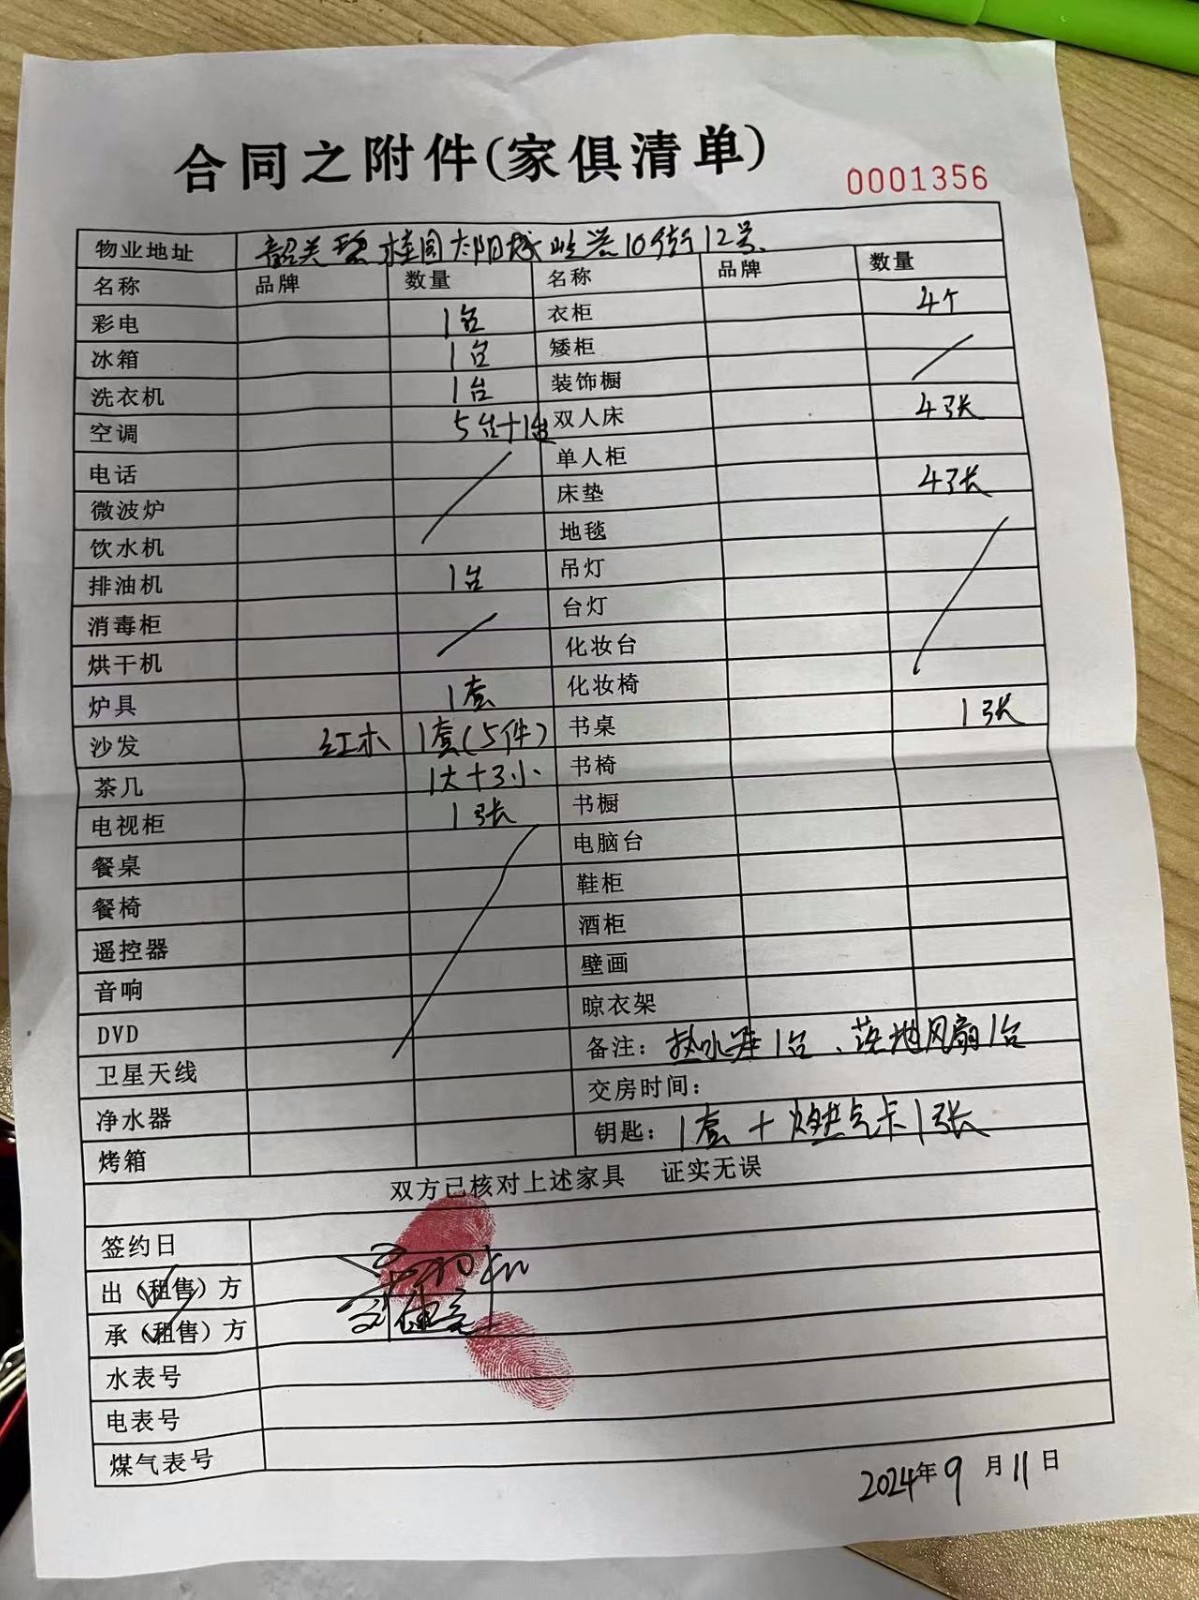 合同之附件(家俱清单)
0001356
物业地址 韶关碧桂园太阳城 10街12号
名称 品牌 数量 名称 品牌 数量
彩电 1台 衣柜 4个
冰箱 1台 矮柜
洗衣机 1台 装饰橱
空调 5台+1台 双人床 4张
电话 单人柜
微波炉 床垫 4张
饮水机 地毯
排油机 1台 吊灯
消毒柜 台灯
烘干机 化妆台
炉具 1套 化妆椅
沙发 红木 1套(5件) 书桌 1张
茶几 1大+3小 书椅
电视柜 1张 书橱
餐桌 电脑台
餐椅 鞋柜
遥控器 酒柜
音响 壁画
DVD 晾衣架
卫星天线 备注：热水器1台、落地风扇1台
净水器 交房时间：
烤箱 钥匙：1套+燃气卡1张
双方已核对上述家具 证实无误
签约日
出（租售）方
承（租售）方
水表号
电表号
煤气表号
2024年9月11日